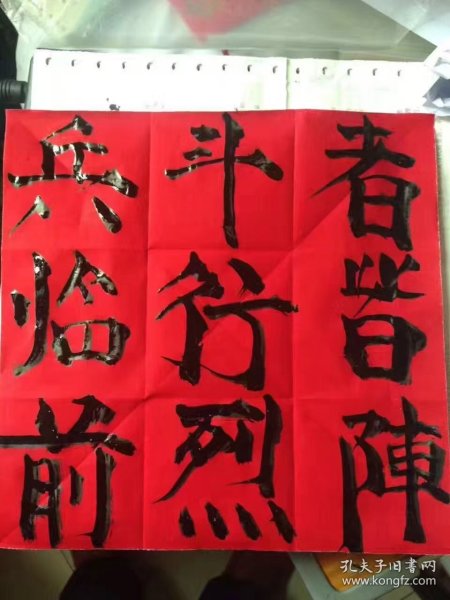 兵斗者
临行皆
前烈陣
孔夫子旧书网
www.kongfz.com